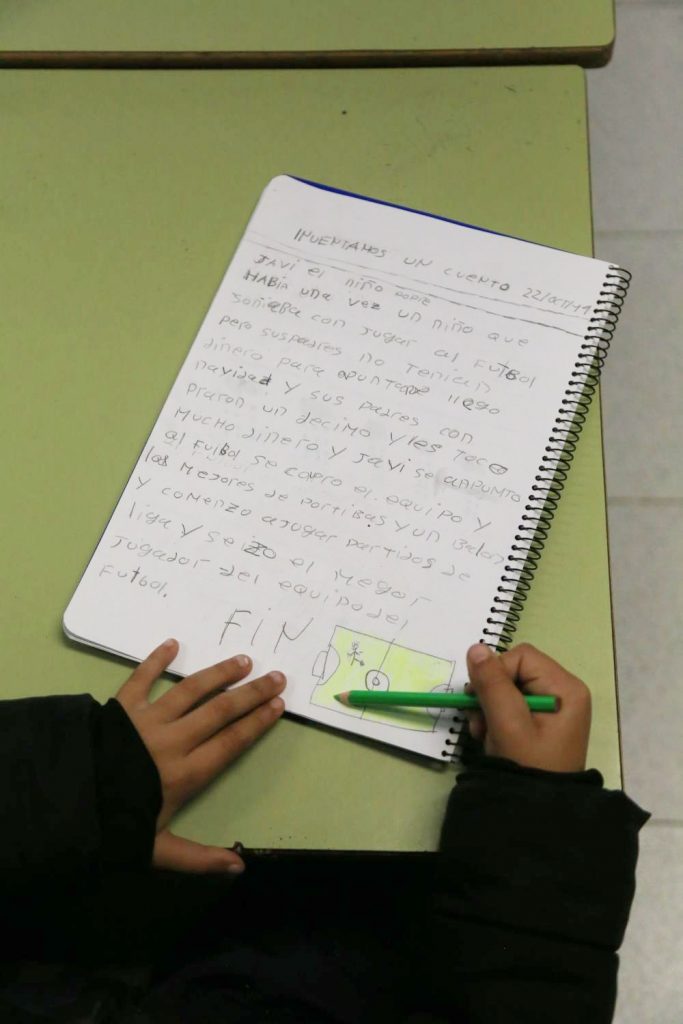 INVENTAMOS UN CUENTO 22/OCT/11
JAVI el niño POBRE
HABía una vez un niño que
soniaba con jugar al futbol
pero suspadres no tenian
dinero para apuntarle llego
navidad y sus padres con
praron un decimo y les toco
mucho dinero y javi se anpunto
al futbol se conpro el equipo y
las mejores de portibas y un balon
y comenzo ajugar partidos de
liga y se izo el megor
jugador del equipo del
futbol.
FIN